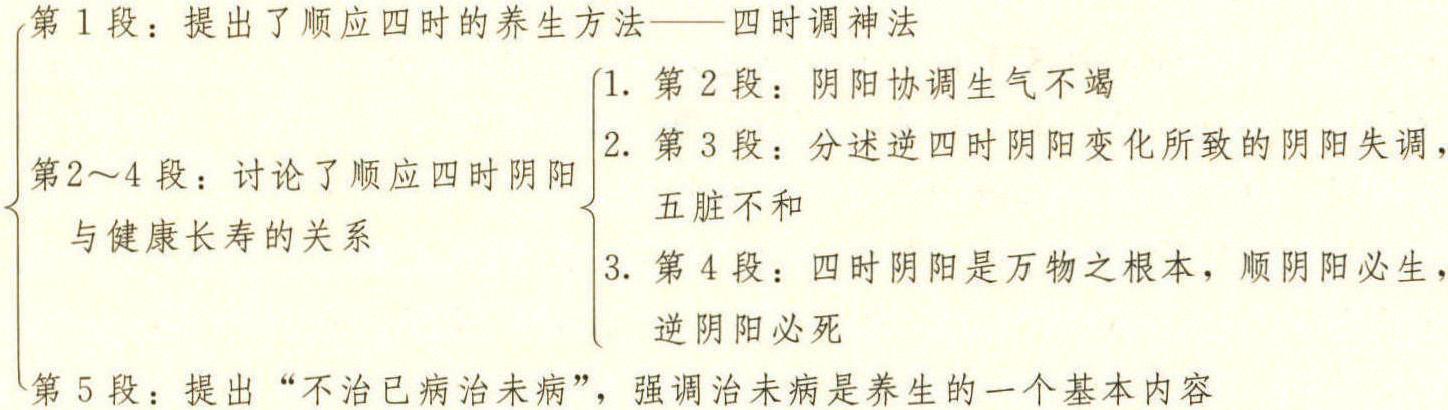 第 1 段：提出了顺应四时的养生方法——四时调神法
第2～4 段：讨论了顺应四时阴阳
与健康长寿的关系
1. 第 2 段：阴阳协调生气不竭
2. 第 3 段：分述逆四时阴阳变化所致的阴阳失调，
五脏不和
3. 第 4 段：四时阴阳是万物之根本，顺阴阳必生，
逆阴阳必死
第 5 段：提出“不治已病治未病”，强调治未病是养生的一个基本内容